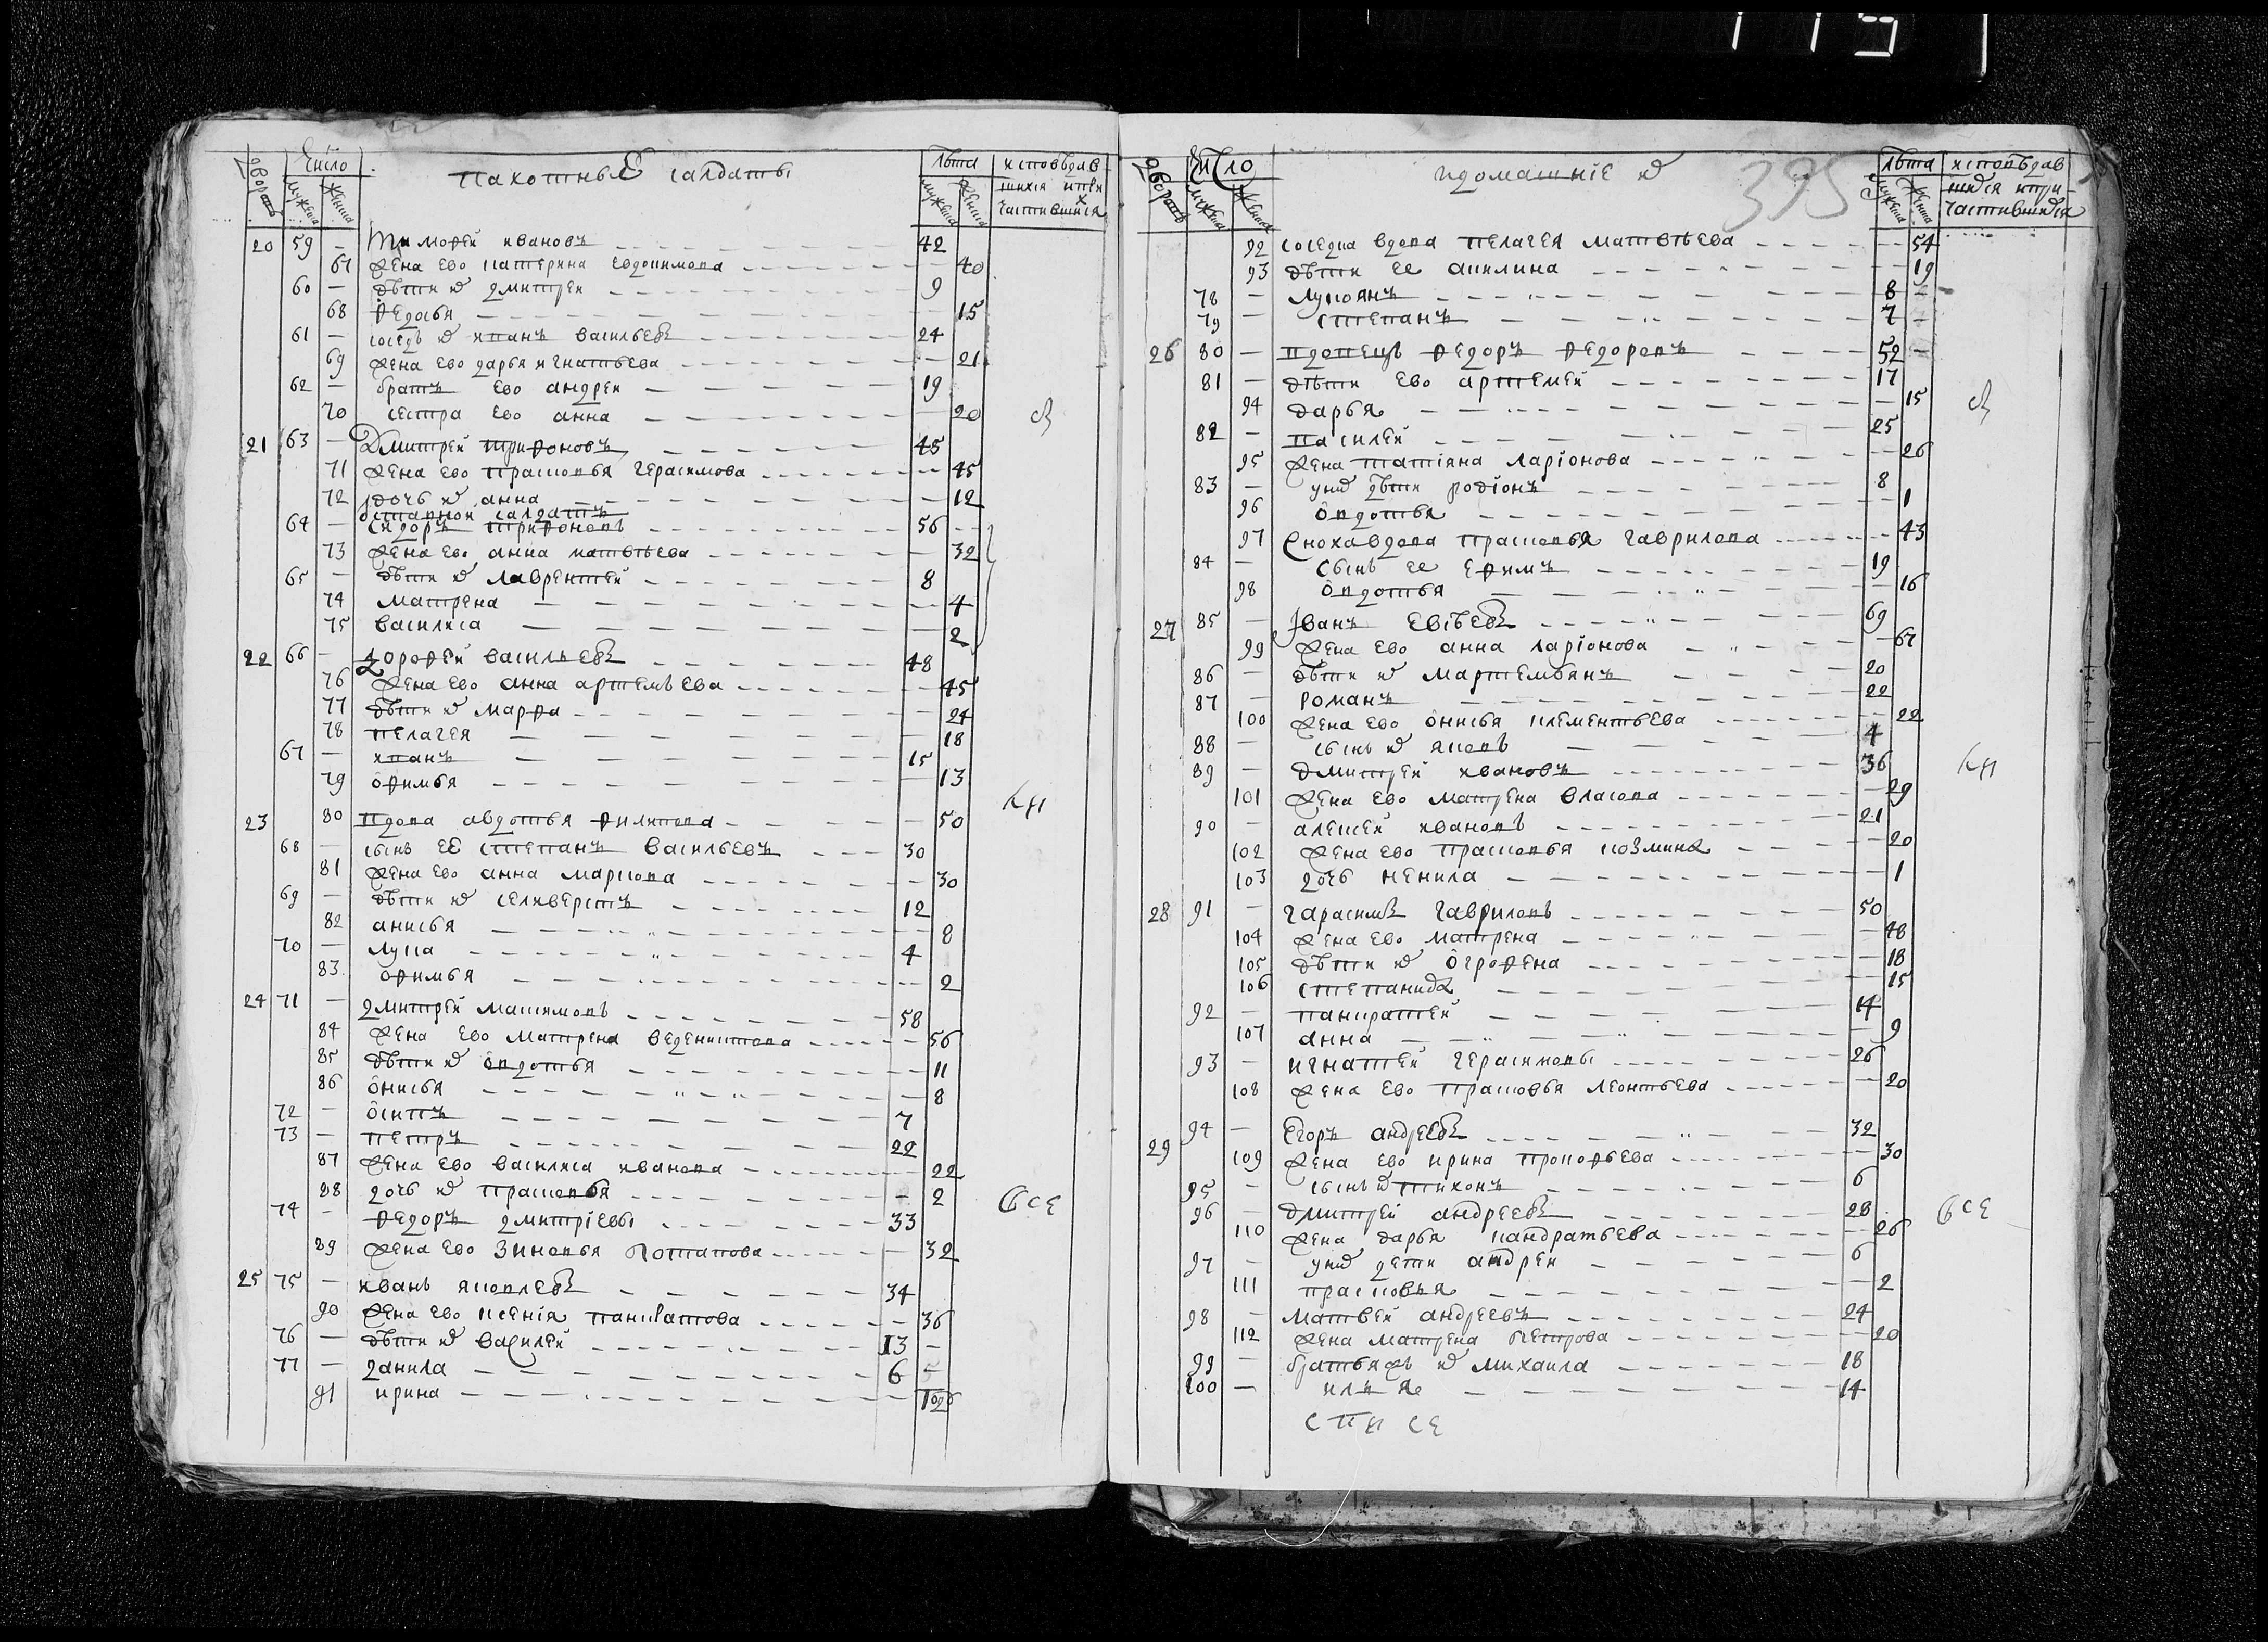 119
число
пахотныЕ салдаты
лѣта
исповѣдав
дворовъ
мужеска
женска
мужеска
женска
шихся и при
частившихся
20 59 – Тимофей ивановъ 42
67 жена ево катерина евдокимова 40
60 – дѣти их дмитреи 9
68 федосья 15
61 – соседъ их иванъ васильевъ 24
69 жена ево дарья игнатьева 21
62 – братъ ево андреи 19
70 сестра ево анна 20
21 63 – Дмитрей трифоновъ 45
71 жена ево прасковья герасимова 45
72 дочь их анна 12
отставной салдатъ
64 – сидоръ трифоновъ 56
73 жена ево анна матвѣева 32
65 – дѣти их лаврентей 8
74 матрена 4
75 василиса 2
22 66 – дорофей васильевъ 48
76 жена ево анна артемьева 45
77 дѣти их марфа 24
78 пелагея 18
67 – иванъ 15
79 офимья 13
23 80 вдова авдотья филипова 50
68 – сынъ ее степанъ васильевъ 30
81 жена ево анна маркова 30
69 – дѣти их селиверстъ 12
82 анисья 8
70 – лука 4
83 офимья 2
24 71 – дмитрей макимовъ 58
84 жена ево матрена веденихтова 56
85 дѣти их овдотья 11
86 онисья 8
72 – осипъ 7
73 – петръ 22
87 жена ево василиса иванова 22
88 дочь их прасковья 2
74 – федоръ дмитріевъ 33
89 жена ево зиновья потапова 32
25 75 – иванъ яковлевъ 34
90 жена ево ксенія панкратова 36
76 – дѣти их василей 13 –
77 – данила 6
91 ирина
все
число
идомашніе их
395
лѣта
исповѣдав
дворовъ
мужеска
женска
мужеска
женска
шихся и при-
частившихся
92 соседка вдова пелагея матвѣева 54
93 дѣти ее акилина 19
78 – лукоянъ 8
79 – степанъ 7 –
26 80 – вдовецъ федоръ федоровъ 52 –
81 – дѣти ево артемей 17
94 дарья 15
82 – василей 25
95 жена татіяна ларіонова 26
83 – у них дѣти родіонъ 8
96 овдотья 1
97 Сноха вдова прасковья гаврилова 43
84 – сынъ ее ефимъ 19
98 овдотья 16
27 85 – Иванъ евсѣевъ 69
99 жена ево анна ларіонова 67
86 – дѣти их мартемьянъ 20
87 – романъ 22
100 жена ево онисья клементьева 22
88 – сынъ их яковъ 4
89 – дмитрей ивановъ 36
101 жена ево матрена власова 29
90 – алексей ивановъ 21
102 жена ево прасковья козмина 20
103 дочь ненила 1
28 91 – гарасимъ гавриловъ 50
104 жена ево матрена 48
105 дѣти их огрофена 18
106 степанида 15
92 – панкратей 14
107 анна 9
93 – игнатей герасимовъ 26
108 жена ево прасковья леонтьева 20
94 – Егоръ андреевъ 32
29 109 жена ево ирина прокофьева 30
95 – сынъ их тихонъ 6
96 – дмитрей андреевъ 28
110 жена дарья кандратьева 26
97 – у них дети андреи 6
111 прасковья 2
98 – матвей андреевъ 24
112 жена матрена петрова 20
99 – братья их михаила 18
100 – илья 14
все